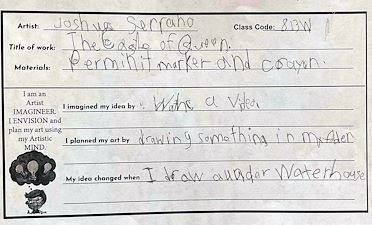 Artist: Joshua Serrano Class Code: 813W
Title of work: The Eagle of Queen.
Materials: Permihit marker and crayon.
I am an
Artist
IMAGINEER.
I ENVISION and
plan my art using
my Artistic
MIND.
I imagined my idea by : Wathc a Video
I planned my art by drawing something in my
My idea changed when I draw Waterhouse